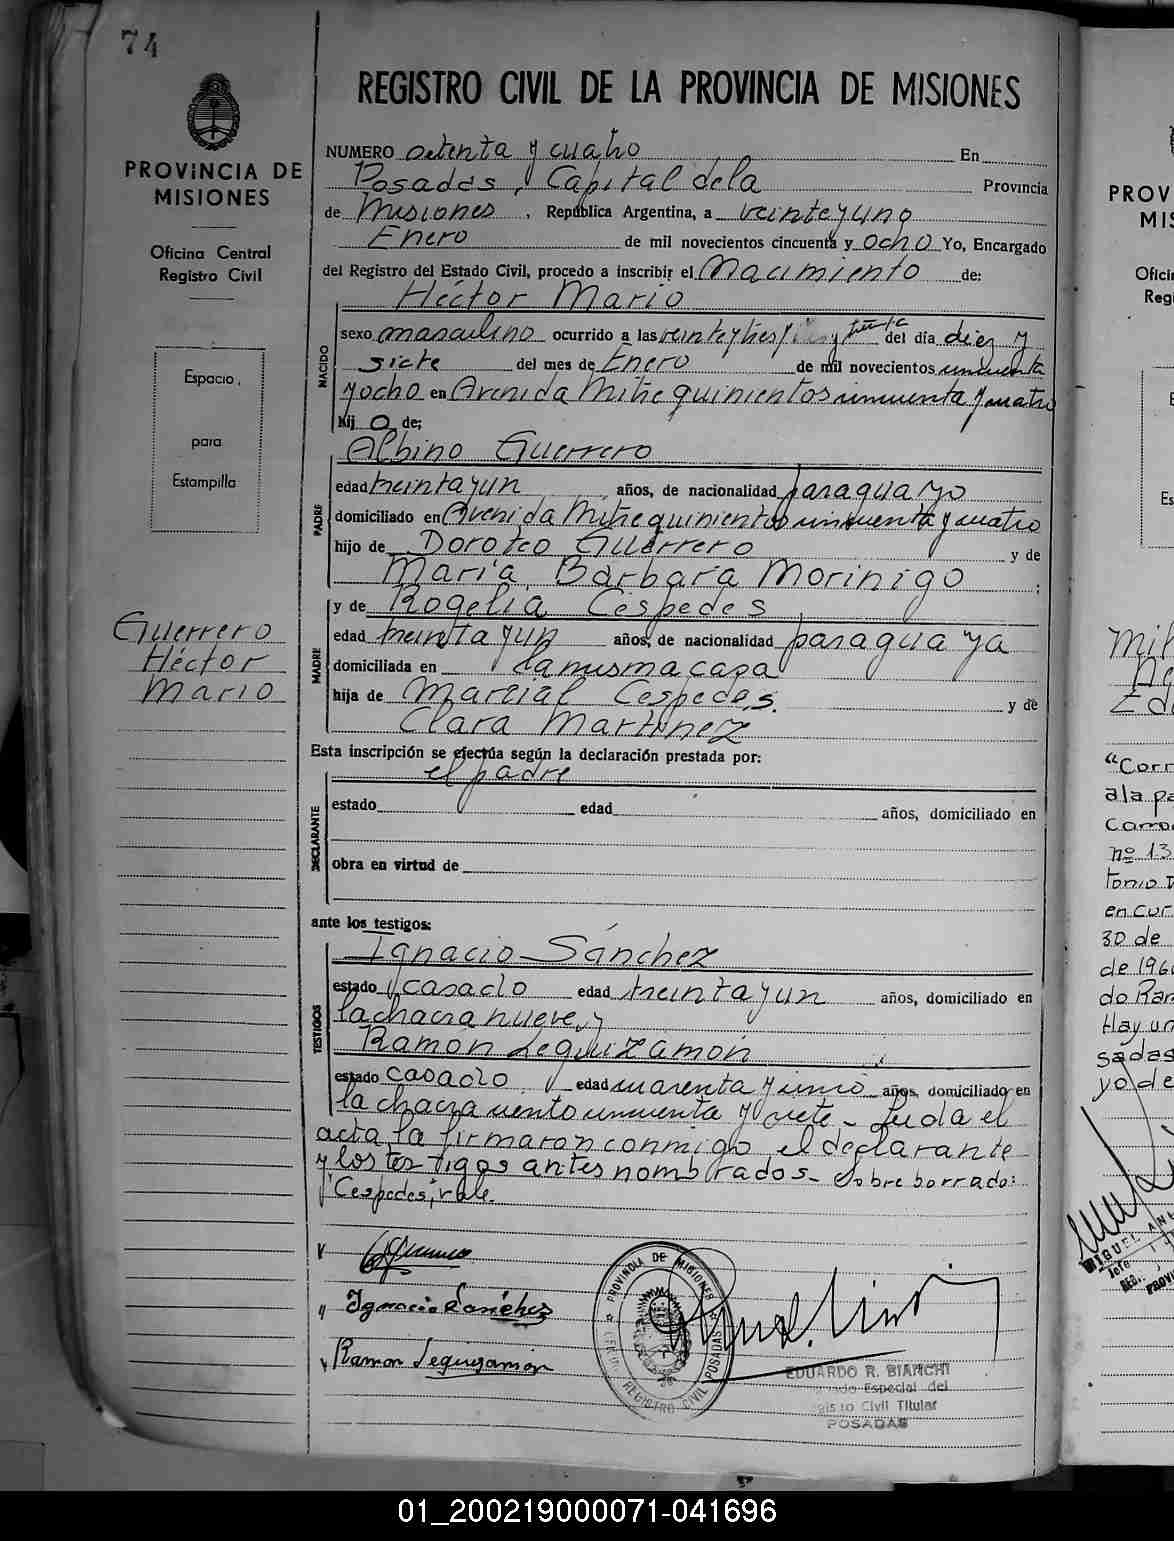 74
REGISTRO CIVIL DE LA PROVINCIA DE MISIONES
PROVINCIA DE
MISIONES
Oficina Central
Registro Civil
Espacio
para
Estampilla
Guerrero
Héctor
Mario
NUMERO setenta y cuatro En
Posadas, Capital dela Provincia
de Misiones, República Argentina, a veinteyuno
Enero de mil novecientos cincuenta y ocho Yo, Encargado
del Registro del Estado Civil, procedo a inscribir el Nacimiento de:
Héctor Mario
NACIDO
sexo masculino ocurrido a las veinteytres y treinta del día diez y
siete del mes de Enero de mil novecientos cincuenta
y ocho en Avenida Mitre quinientos cincuenta y cuatro
hij o de:
Albino Guerrero
PADRE
edad treintayun años, de nacionalidad paraguayo
domiciliado en Avenida Mitre quinientos cincuenta y cuatro
hijo de Doroteo Guerrero y de
María Bárbara Morinigo ;
y de Rogelia Céspedes
MADRE
edad treinta yun años, de nacionalidad paraguaya
domiciliada en la misma casa
hija de Marcial Cespedes. y de
Clara Martinez
Esta inscripción se efectúa según la declaración prestada por:
el padre
DECLARANTE
estado edad años, domiciliado en
obra en virtud de
ante los testigos:
Ignacio Sánchez
TESTIGOS
estado casado edad treintayun años, domiciliado en
la chacra nueve, y
Ramón Leguizamón
estado casado edad cuarenta y cinco años, domiciliado en
la chacra ciento cincuenta y siete - Leida el
acta, la firmaron conmigo, el declarante
y los testigos antes nombrados - Sobre borrado:
"Cespedes", vale.
Ignacio Sanchez
Ramon Leguizamón
PROVINCIA DE MISIONES
REGISTRO CIVIL POSADAS
EDUARDO R. BIANCHI
Especial del
Civil Titular
POSADAS
PROV
MIS
Ofici
Reg
Mil
Ed
"Corr
ala pa
nº 13
tonio
en cur
30 de
de 196
do Ram
Hay un
sadas
yo de
MIGUEL
Jefe
01_200219000071-041696